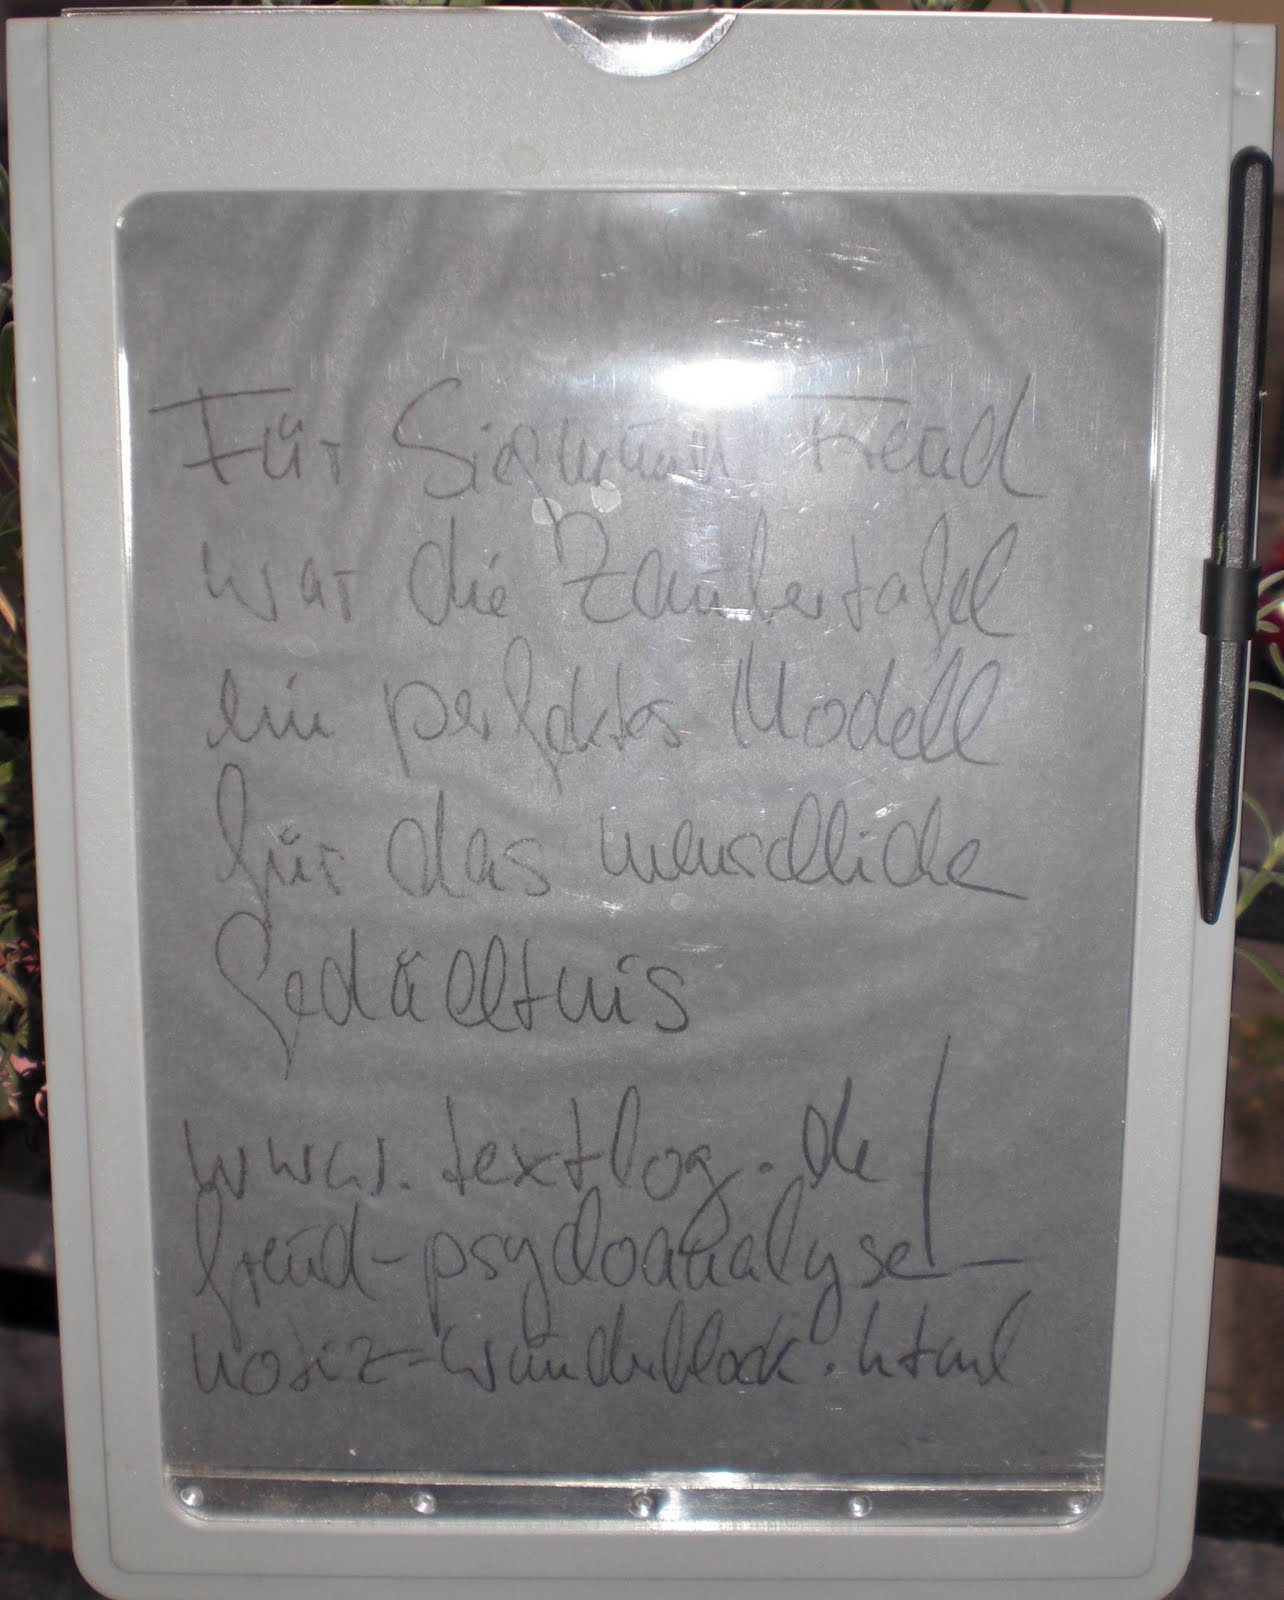 Für Sigmund Freud
war die Zaubertafel
ein perfektes Modell
für das menschliche
Gedächtnis
www.textlog.de/
freud-psychoanalyse-
notiz-wunderblock.html